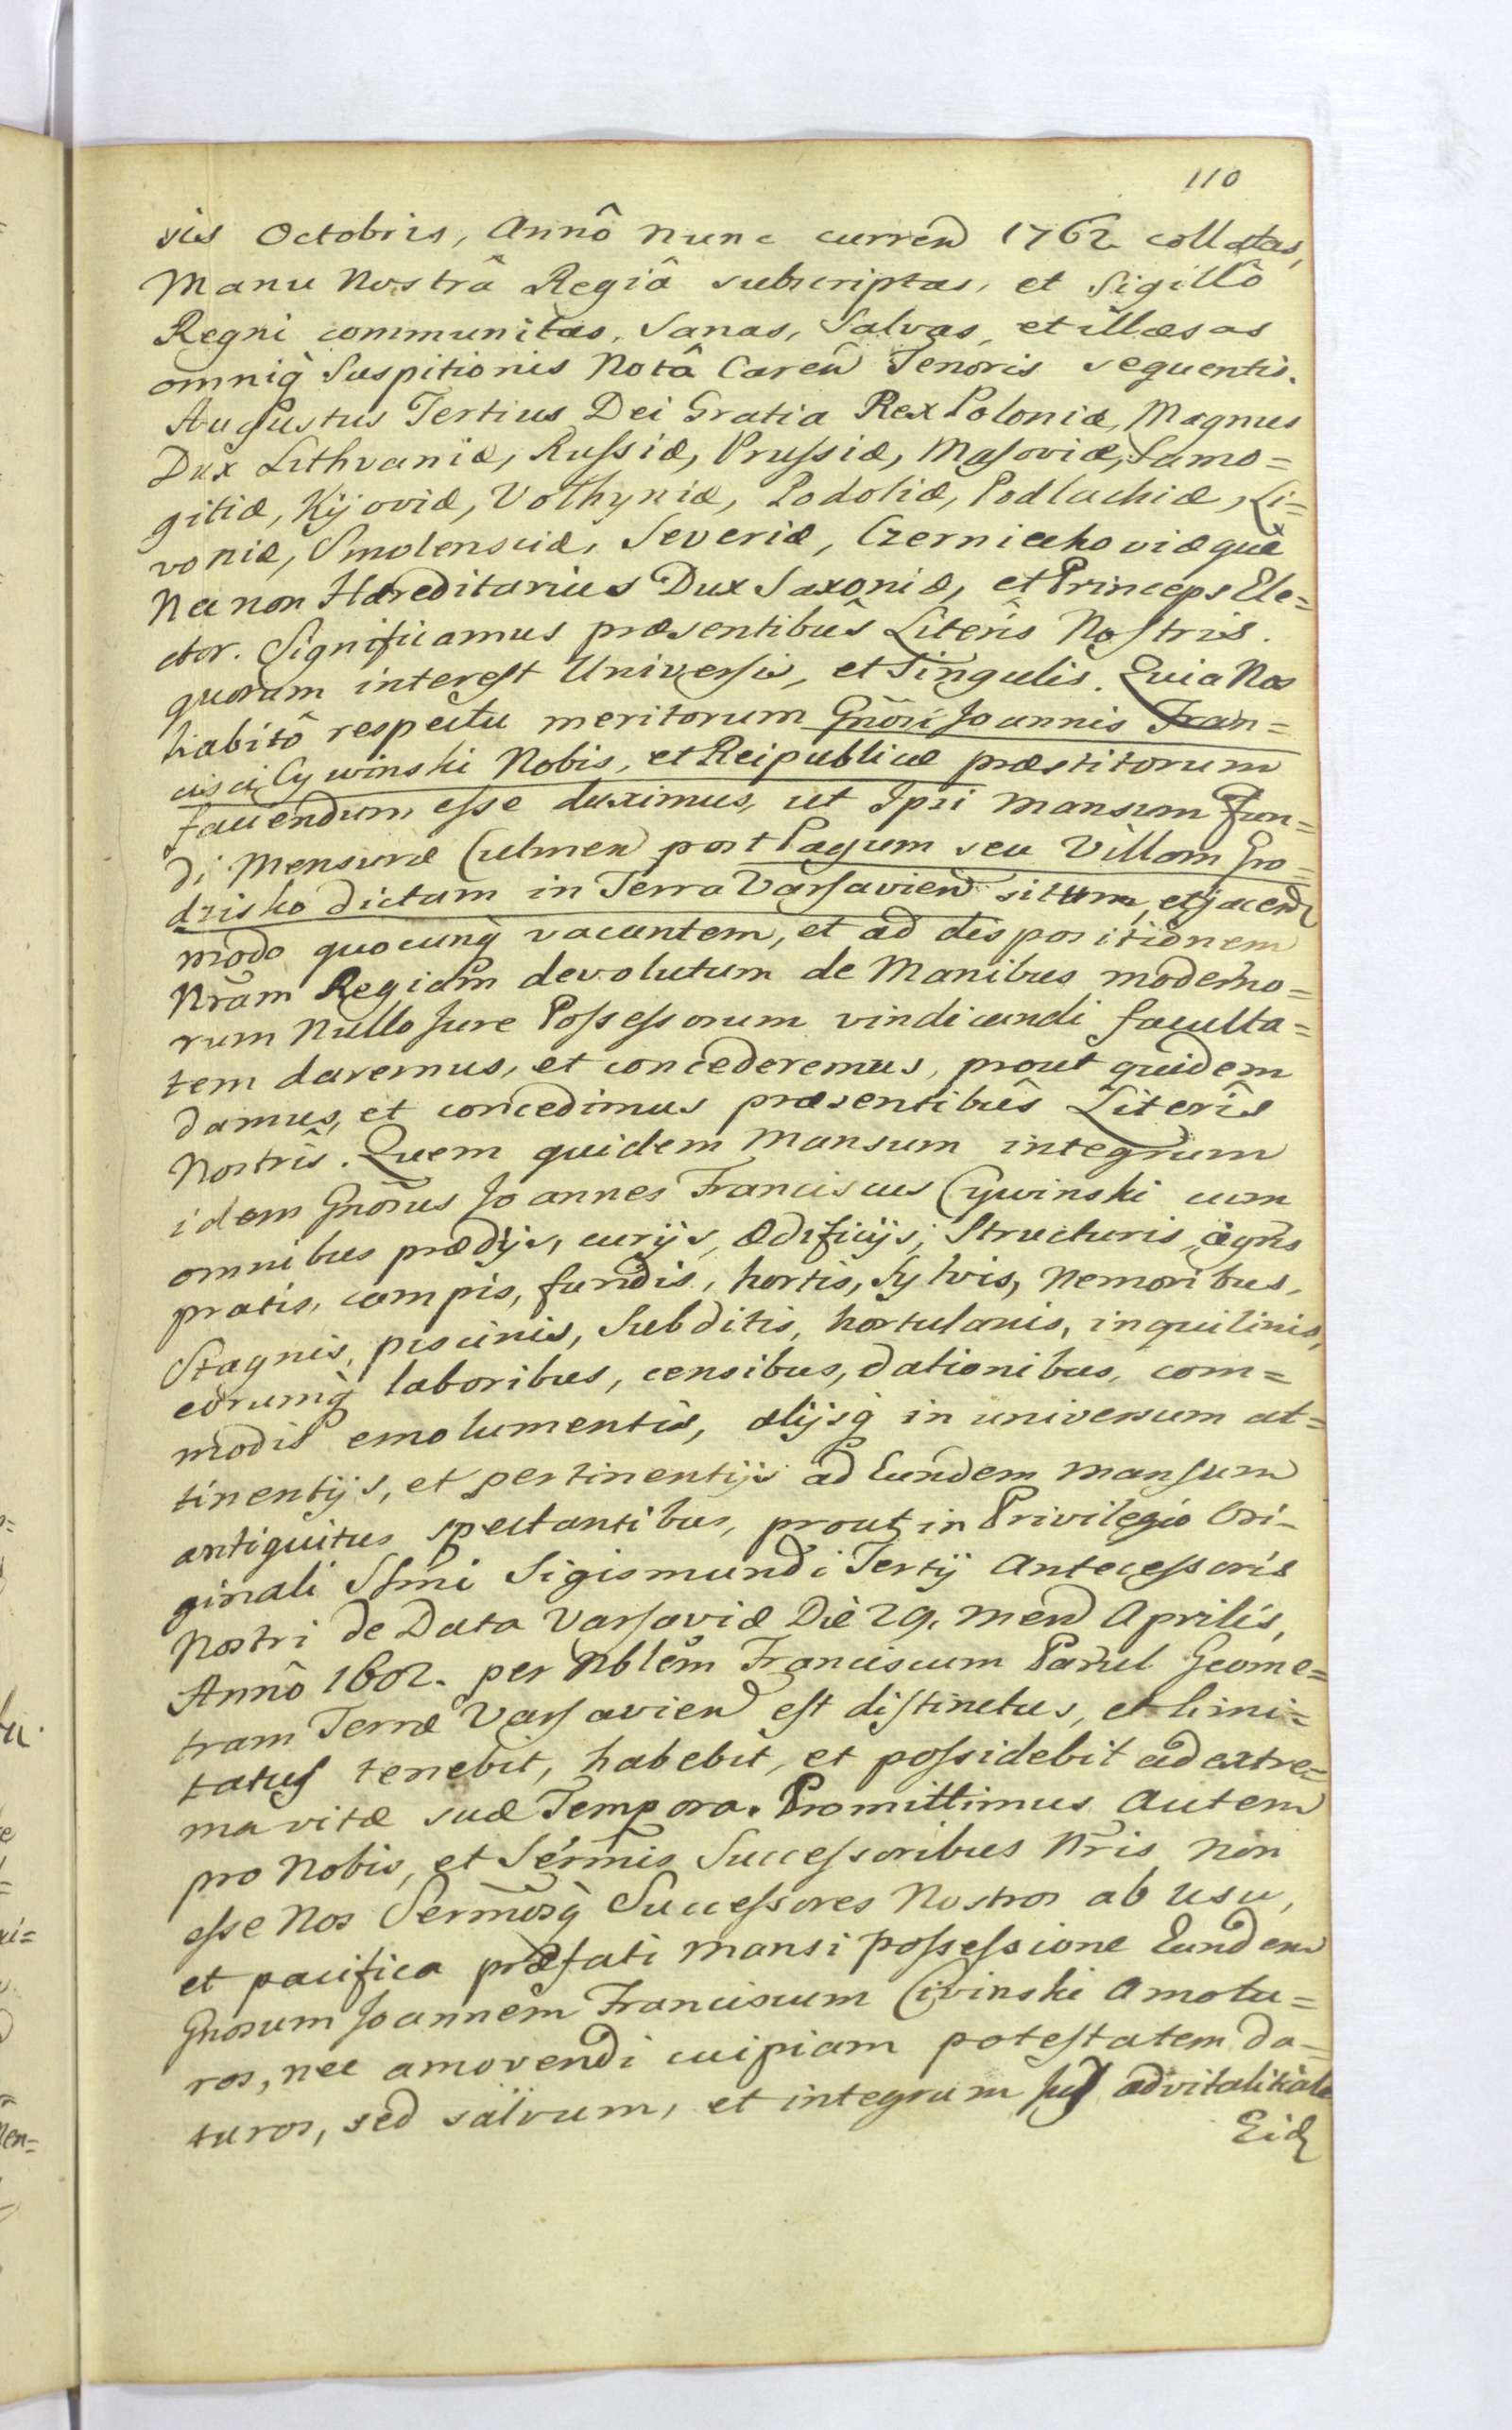 110
sis Octobris, Annô nunc curren 1762 collatas,
Manu Nostrâ Regiâ subscriptas, et Sigillô
Regni communitas, Sanas, Salvas, et illæsas
omniq̀ Suspitionis Notâ Caren̂ Tenoris sequentis.
Augustus Tertius Dei Gratia Rex Poloniæ, Magnus
Dux Lithvaniæ, Russiæ, Prussiæ, Masoviæ, Samo=
gitiæ, Kijoviæ, Volhyniæ, Podoliæ, Podlachiæ, Li=
voniæ, Smolensciæ, Severiæ, Czerniechoviæquè
Nec non Hæreditarius Dux Saxoniæ, et Princeps Ele=
ctor. Significamus præsentibûs Literîs Nostris.
quorum interest Universis, et Singulis. Quia Nos
habitô respectu meritorum Gnõri Joannis Fran=
cisci Cywinski Nobis, et Reipublicæ præstitorum
favendum esse duximus, ut Ipsi Mansum Fun=
di Mensuræ Culmen post Pagum seu Villam Gro=
dzisko dictam in Terra Varsavien situm, et jacen
modo quocunq̀ vacantem, et ad dispositionem
Nrãm Regiam devolutum de Manibus moderno=
rum Nullo Jure Possessorum vindicandi faculta=
tem daremus, et concederemus, prout quidem
damus, et concedimus præsentibûs Literîs
Nostrîs. Quem quidem Mansum integrum
idem Gnõsus Joannes Franciscus Cywinski cum
omnibus prædijs, curijs, ædificijs, Structuris, agris
pratis, campis, fundis, hortis, Sylvis, Nemoribus,
Stagnis, piscinis, Subditis, hortulanis, inquilinis,
eorumq̀ laboribus, censibus, dationibus, com=
modis emolumentis, alijsq̀ in universum at=
tinentijs, et pertinentijs ad Eundem Mansum
antiquitus spectantibus, prout in Privilegio Ori=
ginali Smĩ Sigismundi Tertij Antecessoris
Nostri de Data Varsaviæ Diè 29. Men Aprilis,
Annô 1602. per Nblẽm Franciscum Parul Geome=
tram Terræ Varsavien est distinctus, et limi=
tatus tenebit, habebit, et possidebit ad extre=
ma vitæ suæ Tempora. Promittimus Autem
pro Nobis, et Sermĩs Successoribus Nrĩs, Non
esse Nos Sermõsq̀ Successores Nostros ab usu,
et pacifica præfati Mansi possessione Eundem
Gnosum Joannem Franciscum Civinski Amotu=
ros, nec amovendi cuipiam potestatem da=
turos, sed salvum, et integrum Jus advitalitiale
Eid